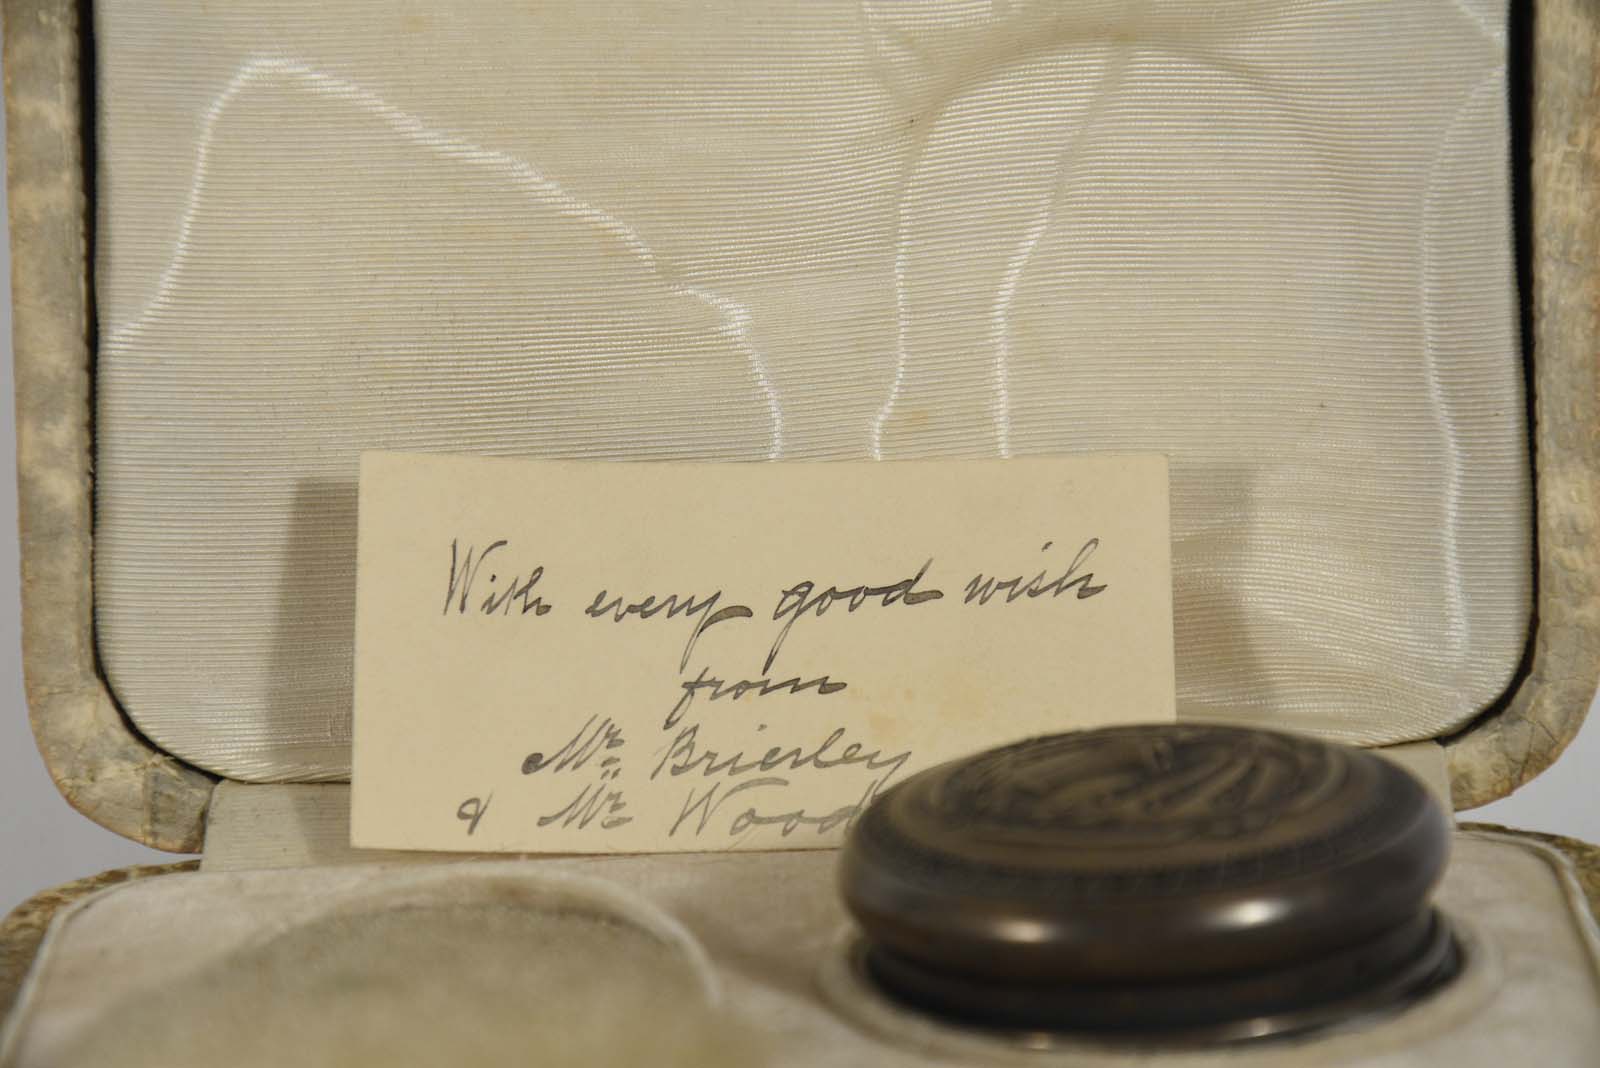 With every good wish
from
Mr. Brierley
& Mr. Wood